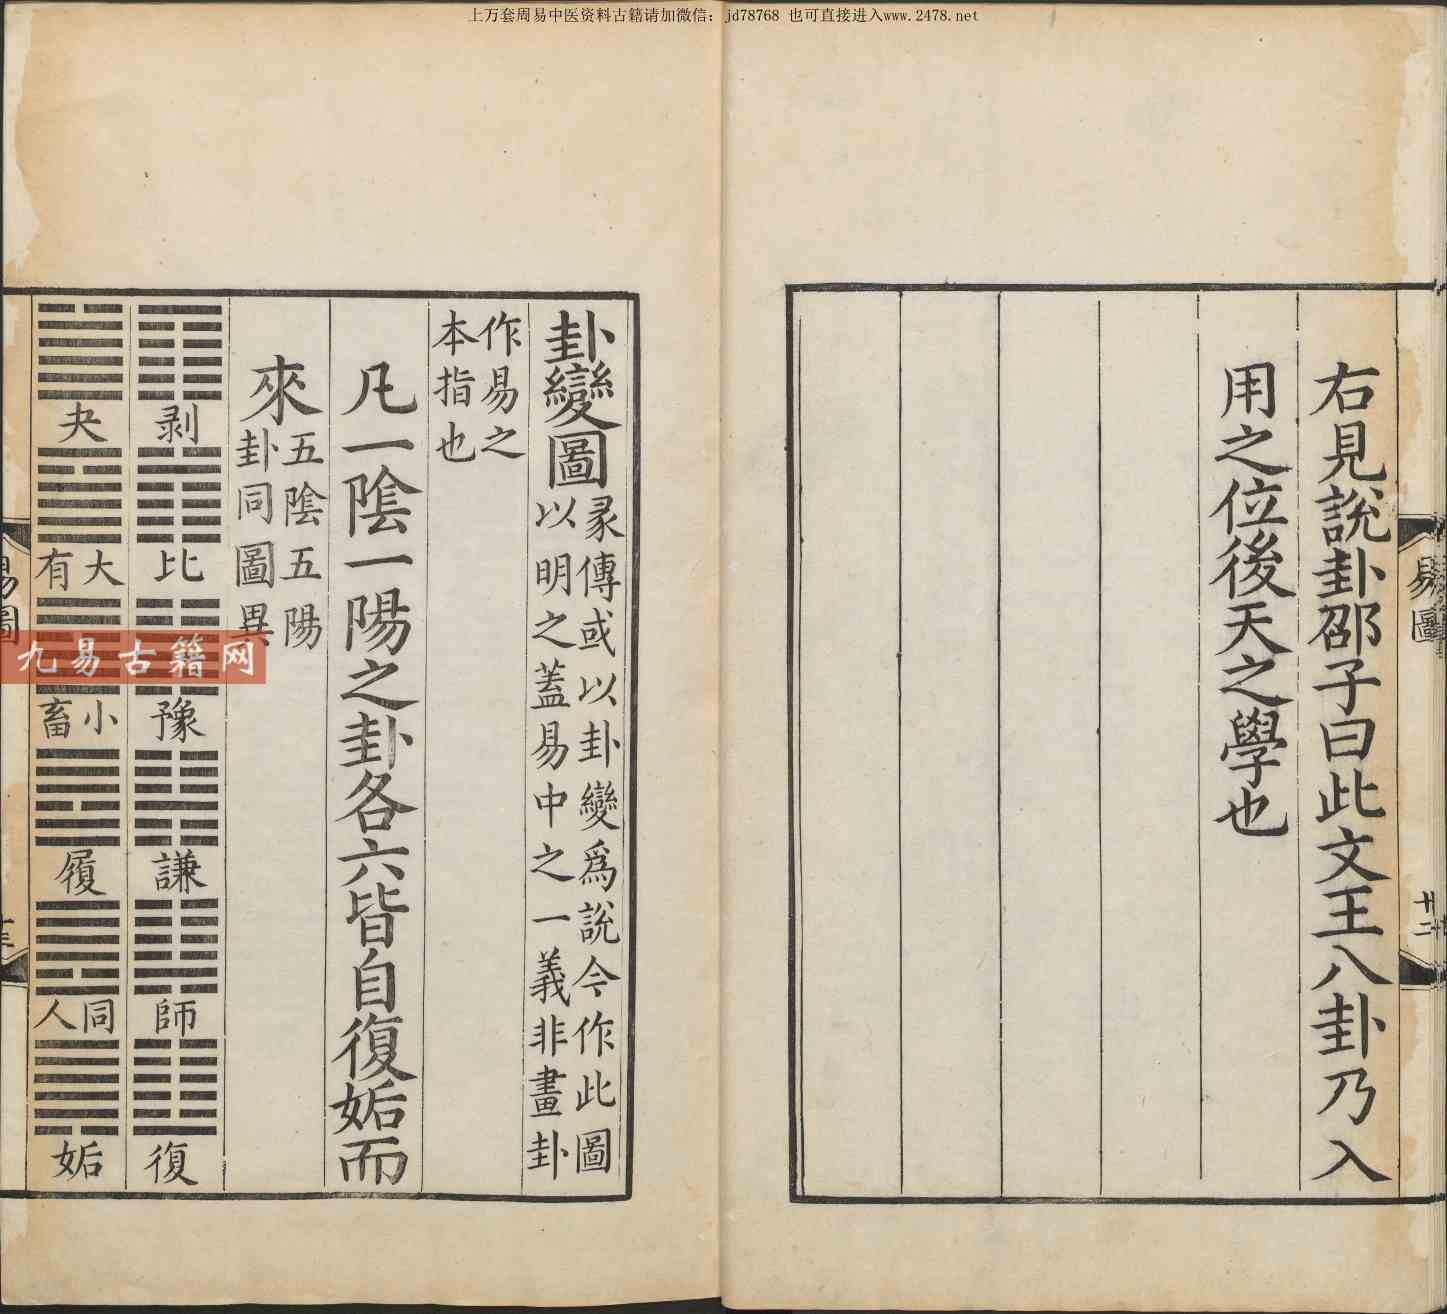 上万套周易中医资料古籍请加微信：jd78768 也可直接进入www.2478.net
易圖
廿二
右見說卦邵子曰此文王八卦乃入
用之位後天之學也
卦變圖
彖傳或以卦變爲說今作此圖
以明之蓋易中之一義非畫卦
作易之
本指也
凡一陰一陽之卦各六皆自復姤而
來
五陰五陽
卦同圖異
剥
比
豫
謙
師
復
夬
大有
小畜
履
同人
姤
易圖
九易古籍网